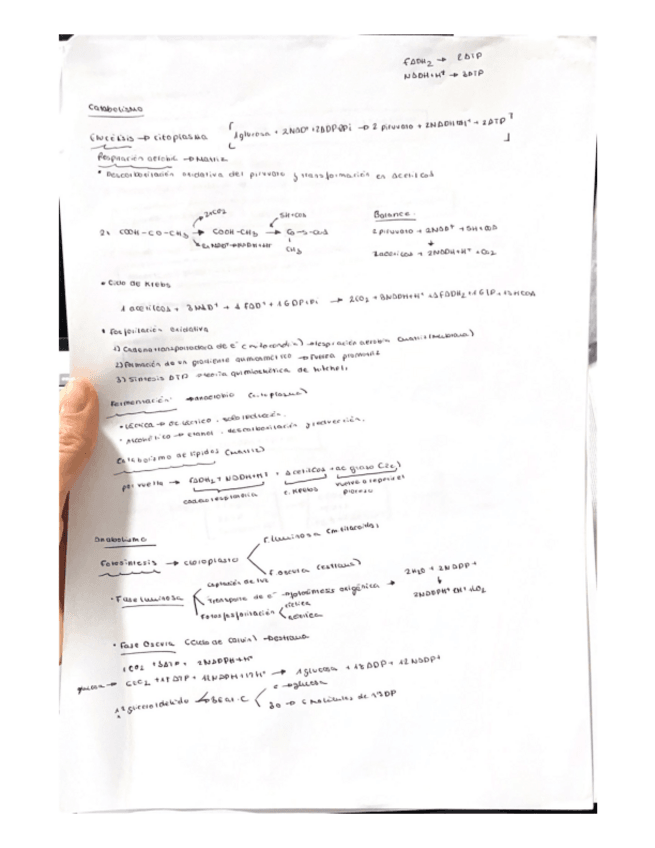 FADH2 → 2ATP
NADH+H+ → 3ATP
Catabolismo
Glucólisis → citoplasma [1glucosa + 2NAD+ + 2ADP+Pi → 2 piruvato + 2NADH+H+ + 2ATP]
Respiración aerobia → Matriz
• Descarboxilación oxidativa del piruvato y transformación en acetilCoA
2CO2 SH-CoA Balance
2x COOH-CO-CH3 → COOH-CH3 → C-S-CoA 2 piruvato + 2NAD+ + SH-CoA
CH3 2acetilCoA + 2NADH+H+ + CO2
• Ciclo de Krebs
1 acetilCoA + 3NAD+ + 1 FAD+ + 1GDP+Pi → 2CO2 + 3NADH+H+ + 1FADH2 + 1GTP + SHCoA
• Fosforilación oxidativa
1) Cadena transportadora de e- (mitocondria) → respiración aerobia
2) Formación de un gradiente quimiosmótico →
3) Síntesis ATP → teoría quimiosmótica de Mitchell
Fermentación → anaerobio (citoplasma)
• Láctica → ac láctico, solo reducción.
• Alcohólica → etanol, descarboxilación y reducción.
Catabolismo de lípidos (Matriz)
por vuelta → FADH2 + NADH+H+ + AcetilCoA + ac graso
cadena respiratoria c. Krebs vuelve a
proceso
Anabolismo
F. luminosa (en tilacoides)
Fotosíntesis → cloroplasto
F. oscura (estroma)
captación de luz
• Fase luminosa transporte de e- fotosíntesis oxigénica → 2H2O + 2NADP+
fotofosforilación cíclica 2NADPH+ H+ + O2
acíclica
• Fase Oscura (Ciclo de Calvin) → estroma
1CO2 + 3ATP + 2NADPH+H+
glucosa → 6CO2 + 18ATP + 12NADPH+12H+ → 1glucosa + 18ADP + 12NADP+
6 → glucosa
30 → 6 moléculas de